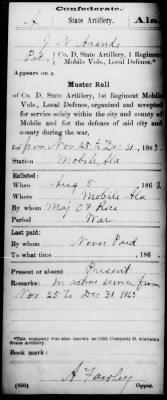 Confederate.
A State Artillery. Ala
J. N. Arands
Pvt., Co. D, State Artillery, 1 Regiment
Mobile Vols., Local Defence.*
Appears on a
Muster Roll
of Co. D, State Artillery, 1st Regiment Mobile
Vols., Local Defence, organized and accepted
for service solely within the city and county of
Mobile and for the defence of said city and
county during the war,
for from Nov 25 to Dec 31, 1863.
Station Mobile, Ala
Enlisted:
When Aug 5, 1863.
Where Mobile Ala
By whom Maj O F Rice
Period War
Last paid:
By whom Never Paid
To what time , 186 .
Present or absent Present
Remarks: In active service from
Nov 25 to Dec 31 1863
*This company was also known as (2d) Company D, Alabama
State Artillery.
Book mark:
(650) Copyist.